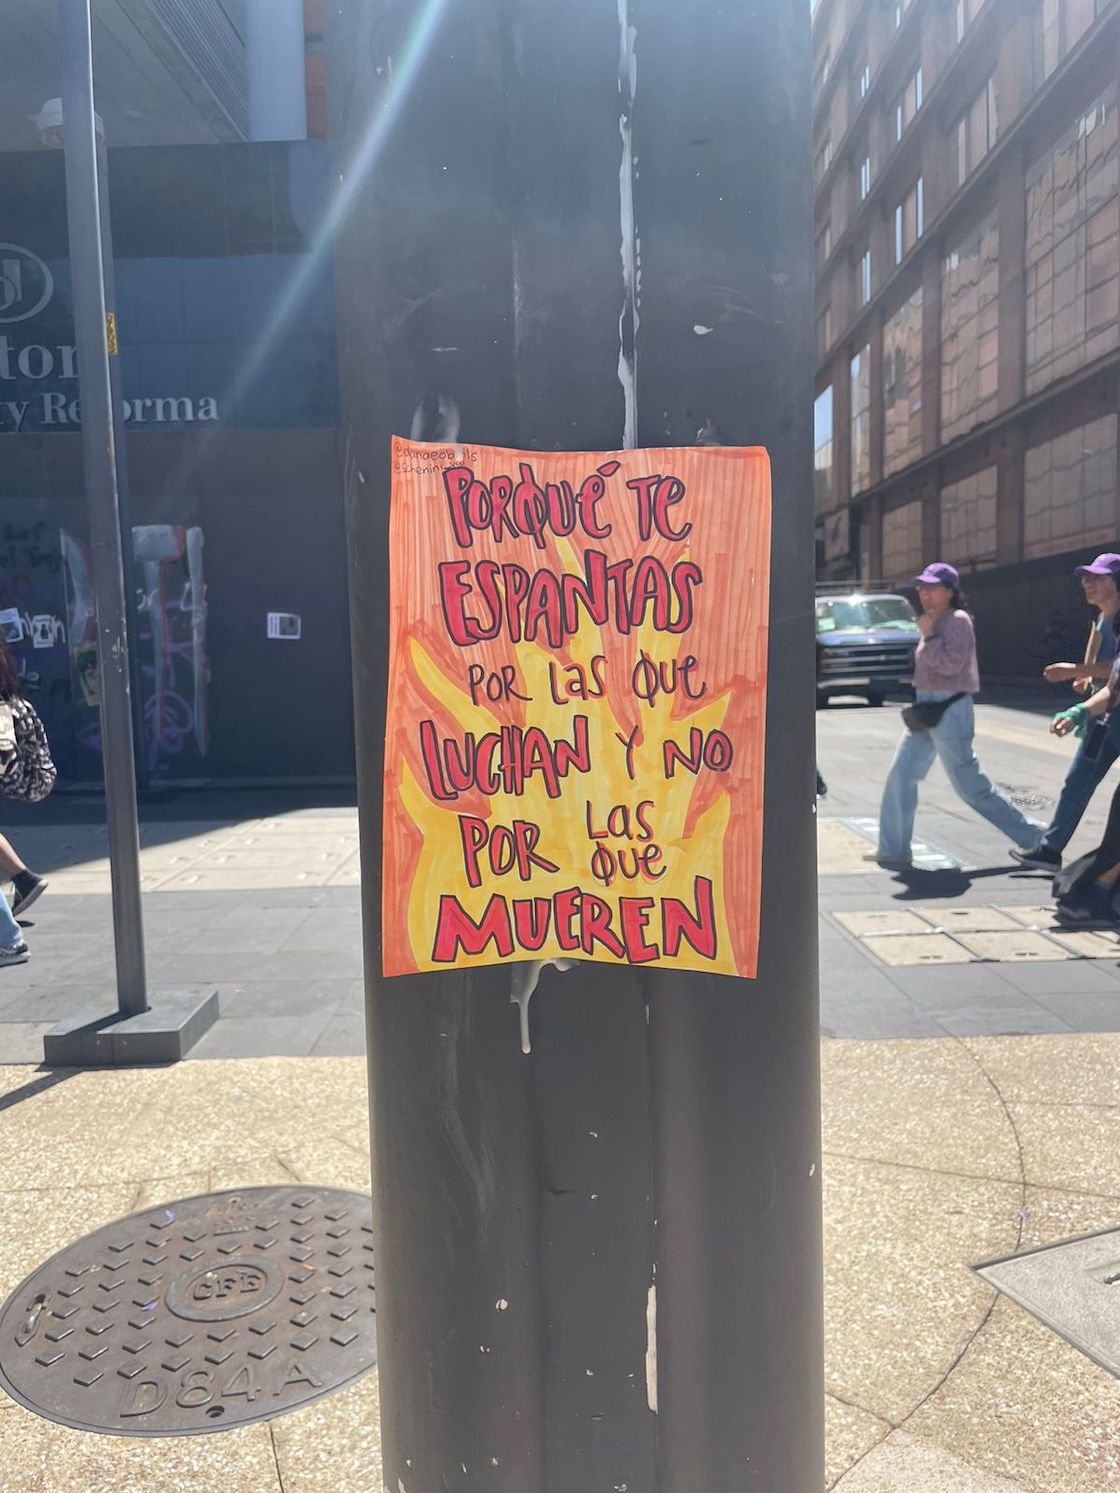 PORQUÉ TE
ESPANTAS
POR LAS QUE
LUCHAN Y NO
POR LAS
QUE
MUEREN
Reforma
CFE
D84A